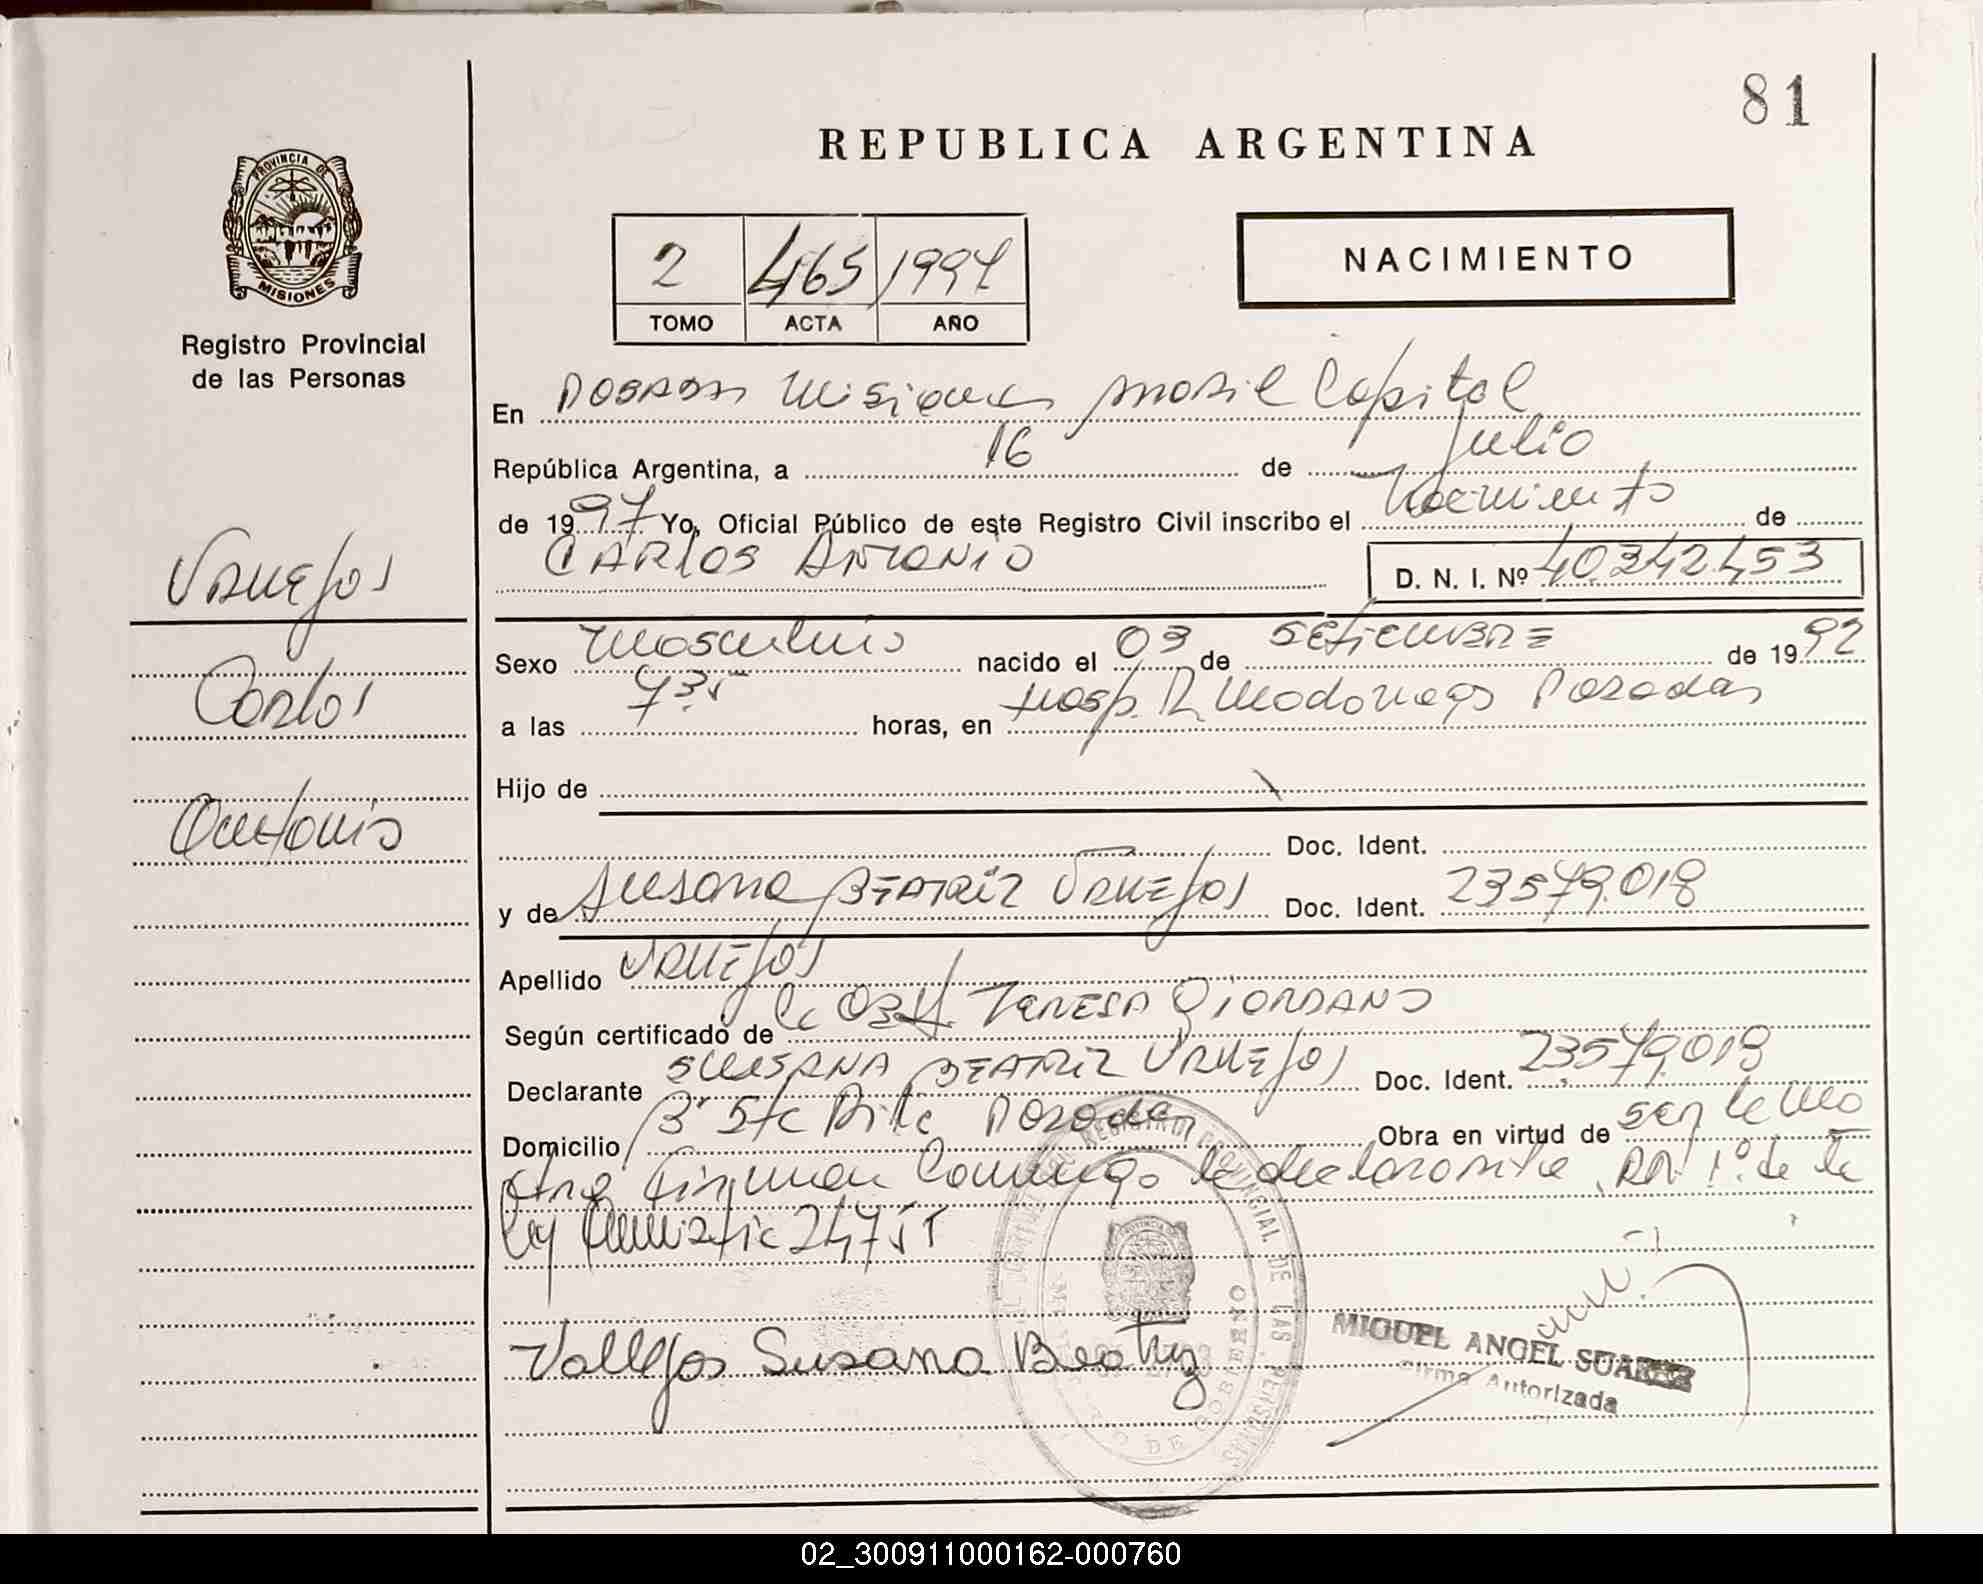 81
REPUBLICA ARGENTINA
PROVINCIA DE
MISIONES
Registro Provincial
de las Personas
2 465 1997
TOMO ACTA AÑO
NACIMIENTO
En Posadas Misiones movil Capital
República Argentina, a 16 de Julio
de 1997 Yo, Oficial Público de este Registro Civil inscribo el Nacimiento de
CARLOS ANTONIO D. N. I. Nº 40.342.453
Vallejos
Carlos
Antonio
Sexo Masculino nacido el 03 de SETIEMBRE de 1992
a las 7 35 horas, en Hosp. R. Madariaga Posadas
Hijo de
Doc. Ident.
y de Susana BEATRIZ VALLEJOS Doc. Ident. 23579.018
Apellido VALLEJOS
Según certificado de la Obst. TERESA GIORDANO
Declarante SUSANA BEATRIZ VALLEJOS Doc. Ident. 23579.018
Domicilio Bº Sta Rita Posadas Obra en virtud de ser la madre
firman Conmigo la declarante, 1º de la
Ley Amnistia 24755
Vallejos Susana Beatriz
REGISTRO PROVINCIAL DE LAS PERSONAS
DE GOBIERNO
MIGUEL ANGEL SUAREZ
Firma Autorizada
02_300911000162-000760